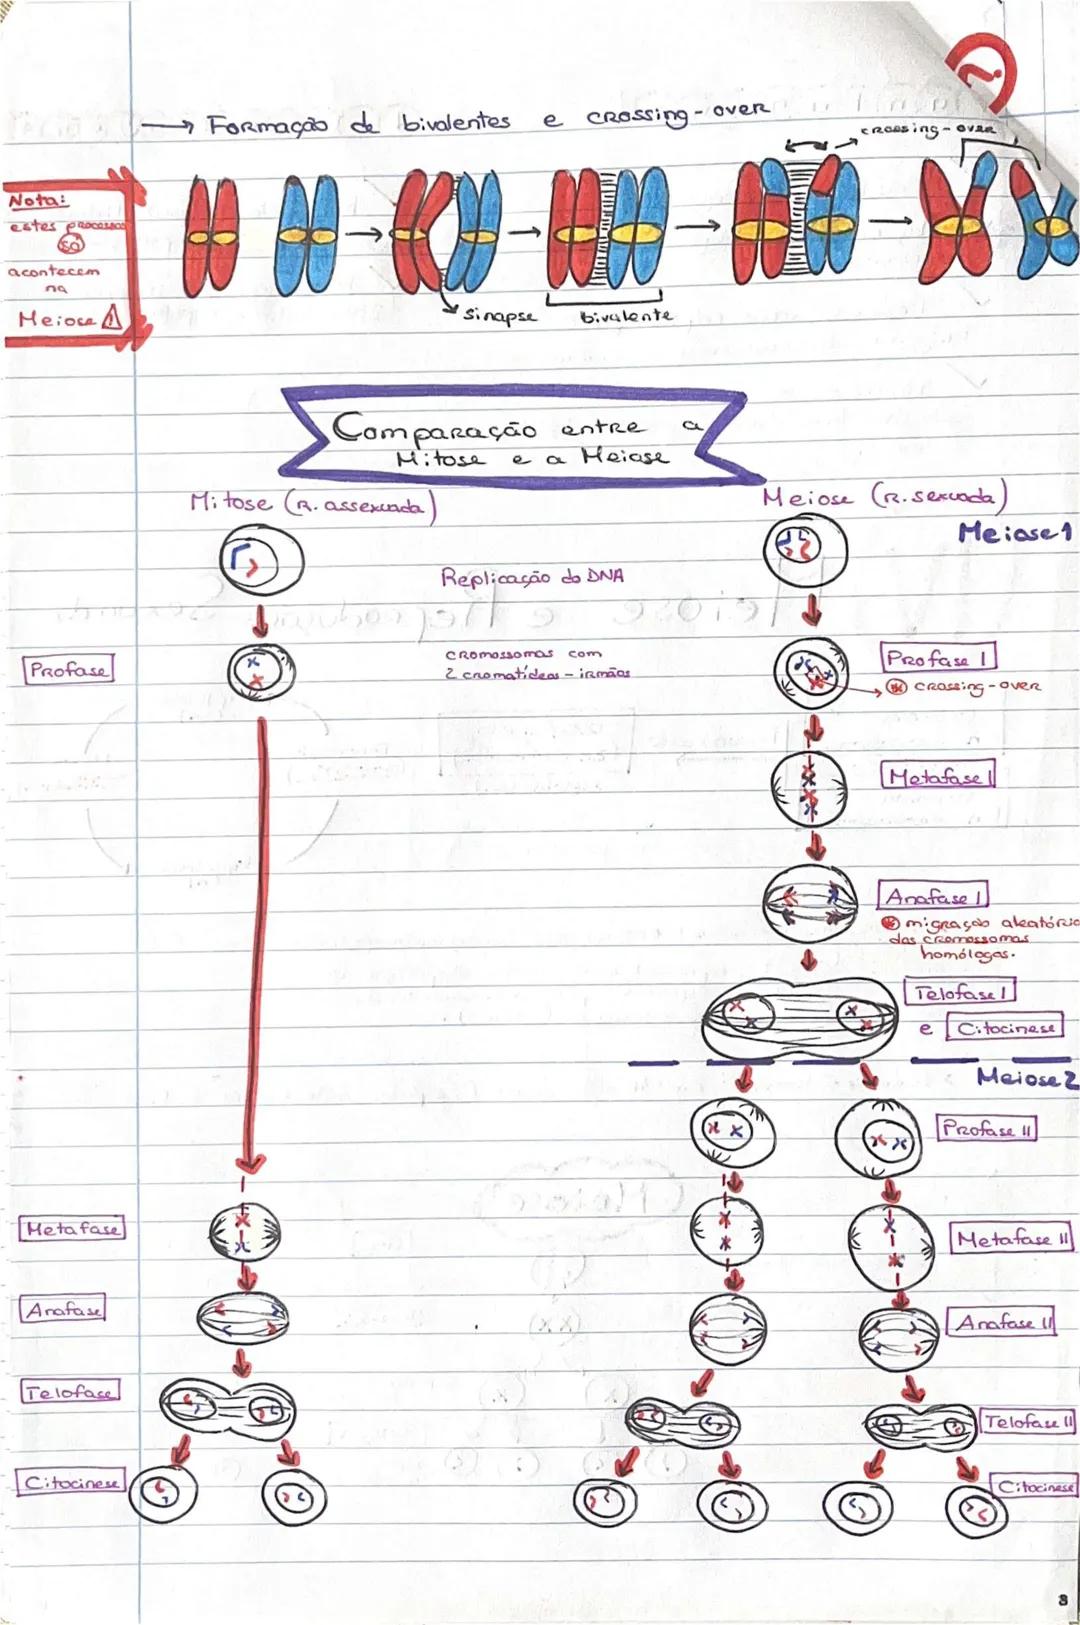 → Formação de bivalentes e crossing-over
crossing-over
Nota:
estes processos
só
acontecem
na
Meiose 1
sinapse
bivalente
Comparação entre a
Mitose e a Meiose
Mitose (R. assexuada)
Meiose (R. sexuada)
Meiose 1
Replicação do DNA
Profase
cromossomas com
2 cromatídeos-irmãos
Profase I
* crossing-over
Metafase I
Anafase I
* migração aleatória
dos cromossomas
homólogos.
Telofase I
e Citocinese
Meiose 2
Profase II
Metafase
Metafase II
Anafase
Anafase II
Telofase
Telofase II
Citocinese
Citocinese
3